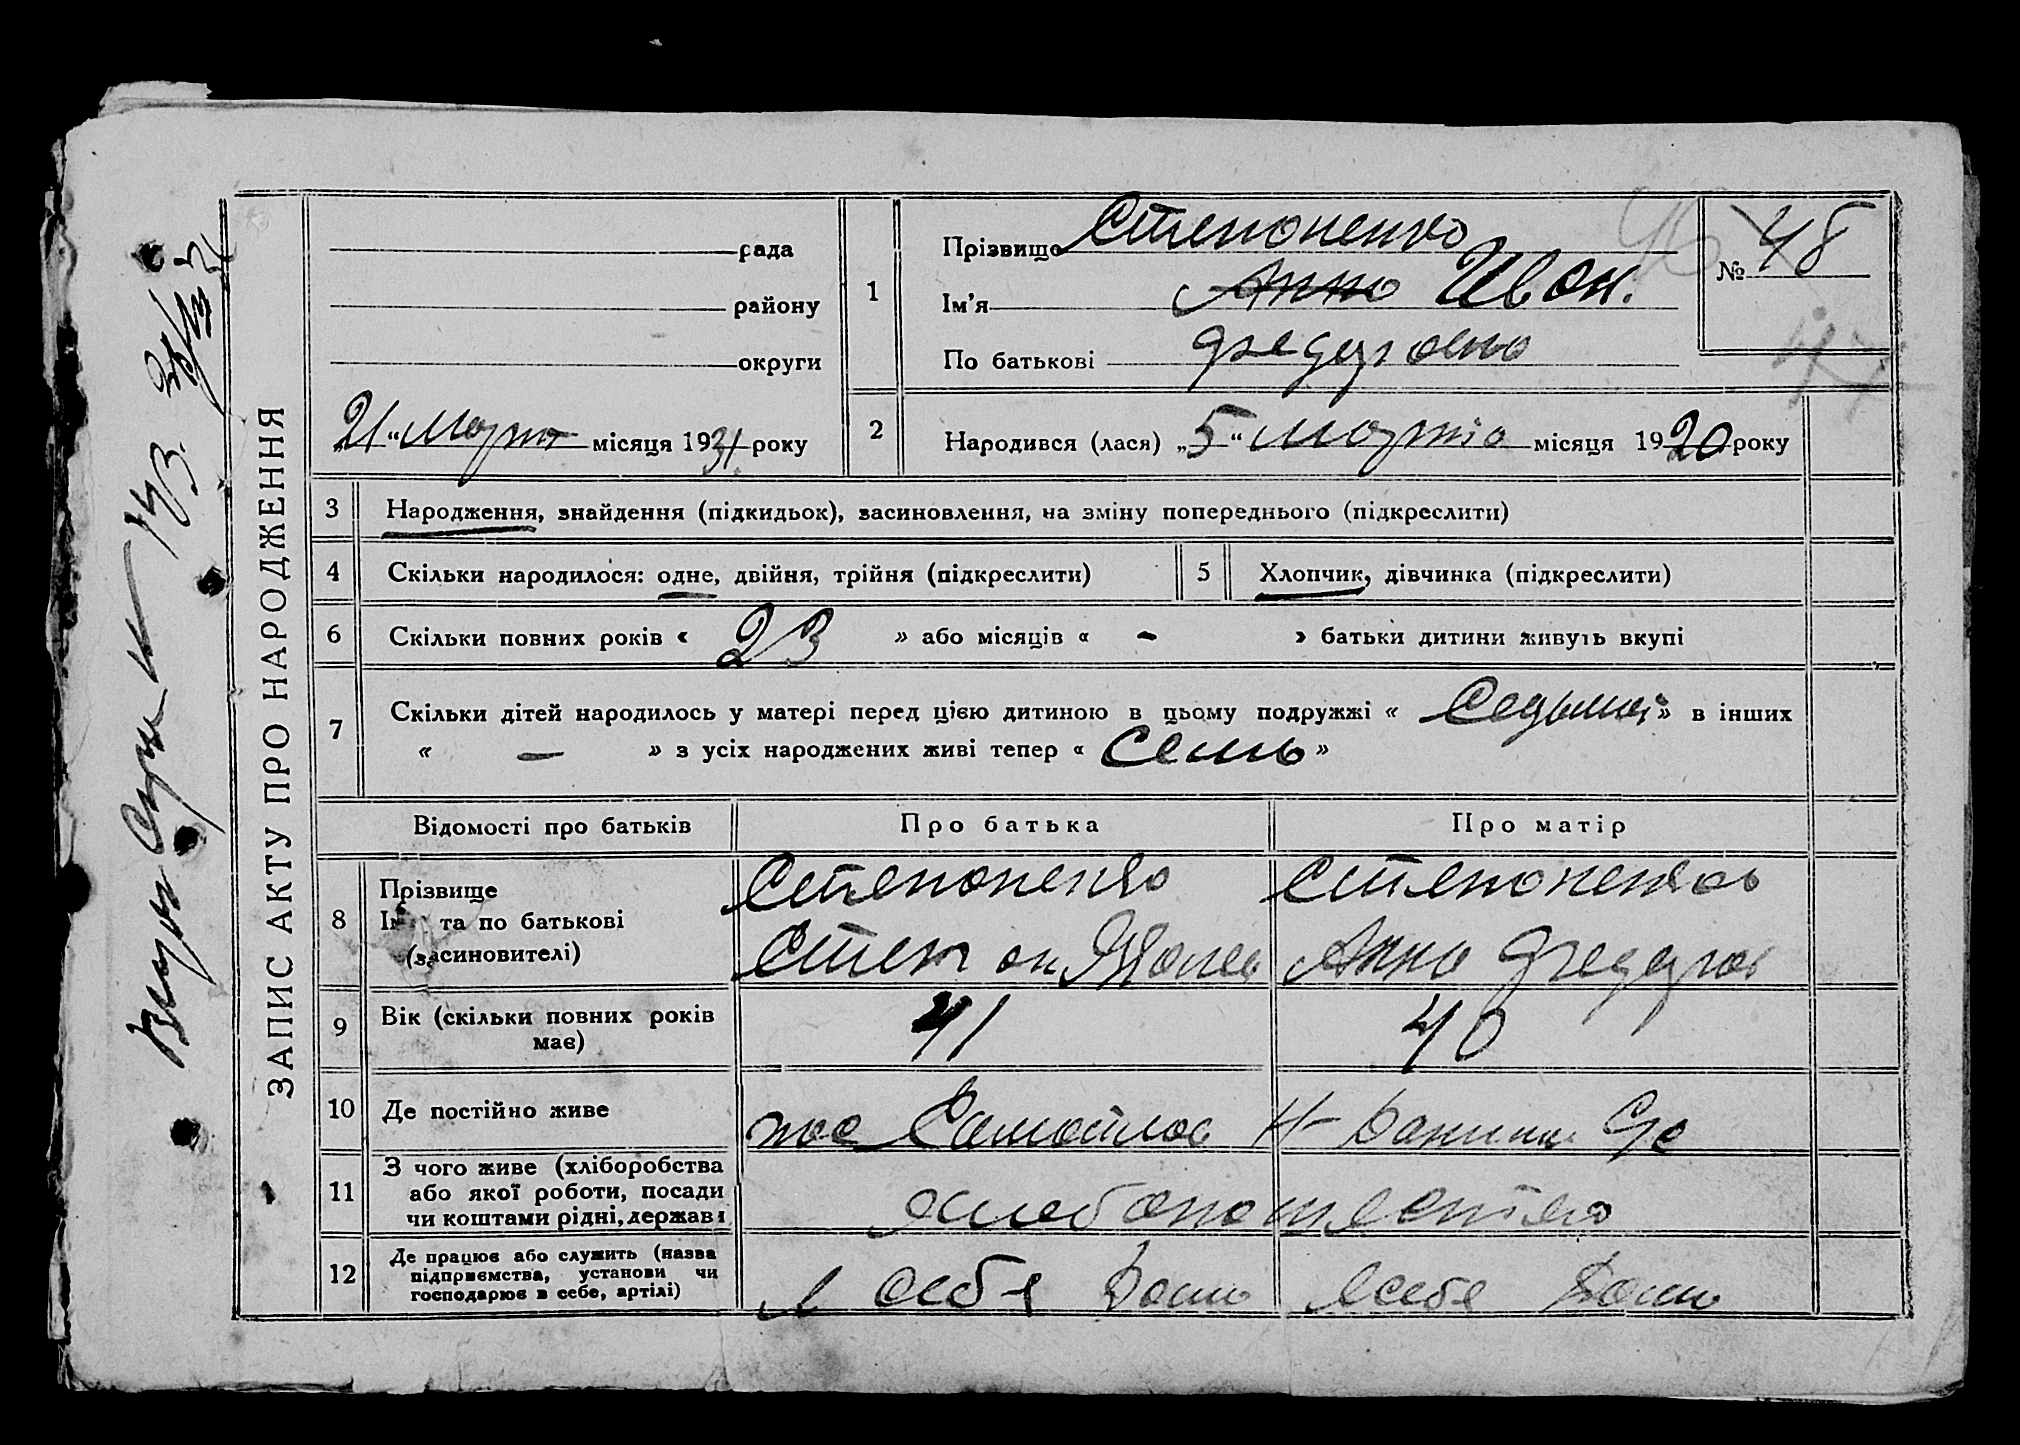 ЗАПИС АКТУ ПРО НАРОДЖЕННЯ
рада
району
округи
21 "Марта місяця 1931 року
1
Прізвище Степоненко
Ім'я Анно Ивон.
По батькові Федеровно
№ 48
2
Народився (лася) „5“ Марта місяця 1920 року
3 Народження, знайдення (підкидьок), засиновлення, на зміну попереднього (підкреслити)
4 Скільки народилося: одне, двійня, трійня (підкреслити)
5 Хлопчик, дівчинка (підкреслити)
6 Скільки повних років « 23 » або місяців « - » батьки дитини живуть вкупі
7 Скільки дітей народилось у матері перед цією дитиною в цьому подружжі « Седьмой » в інших
« — » з усіх народжених живі тепер « Семь »
Відомості про батьків Про батька Про матір
8 Прізвище
Ім'я та по батькові
(засиновителі)
Степоненко
Степон
Степоненков
Анно Федеров
9 Вік (скільки повних років
має)
41 40
10 Де постійно живе
пос
11 З чого живе (хліборобства
або якої роботи, посади
чи коштами рідні, держави
хлебопошество
12 Де працює або служить (назва
підприємства, установи чи
господарює в себе, артілі)
у себя дома у себя дома